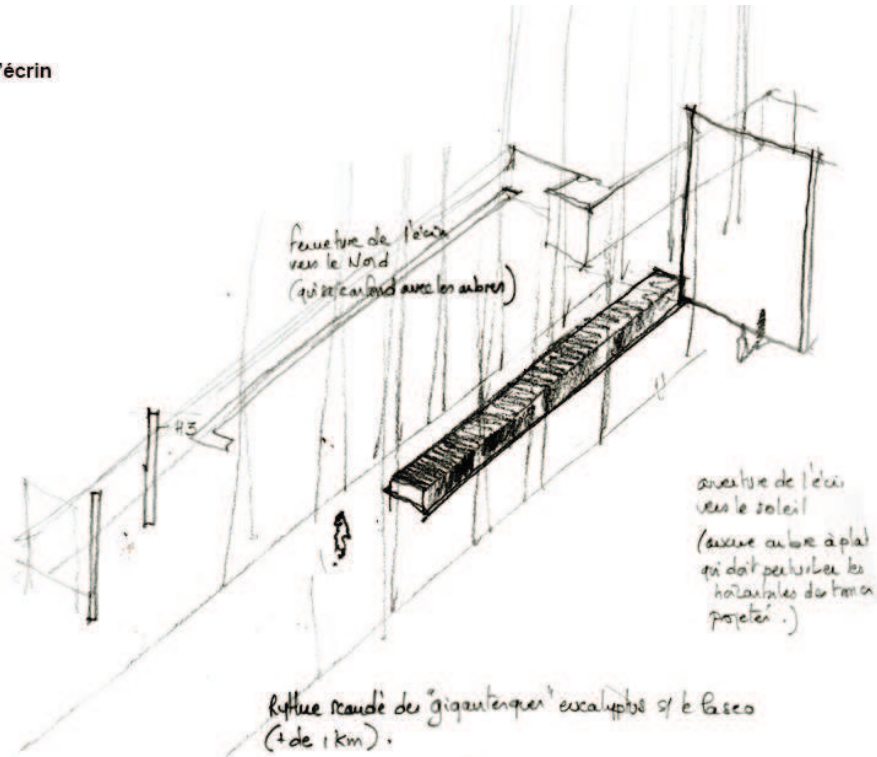 'écrin
fermeture de l'écrin
vers le Nord
(qui se confond avec les arbres)
H3
ouverture de l'écrin
vers le soleil
(aucune ombre à plat
qui doit perturber les
horizontales des troncs
projetés.)
Rythme scandé des "gigantesques" eucalyptus s/ le Paseo
(+ de 1 km).